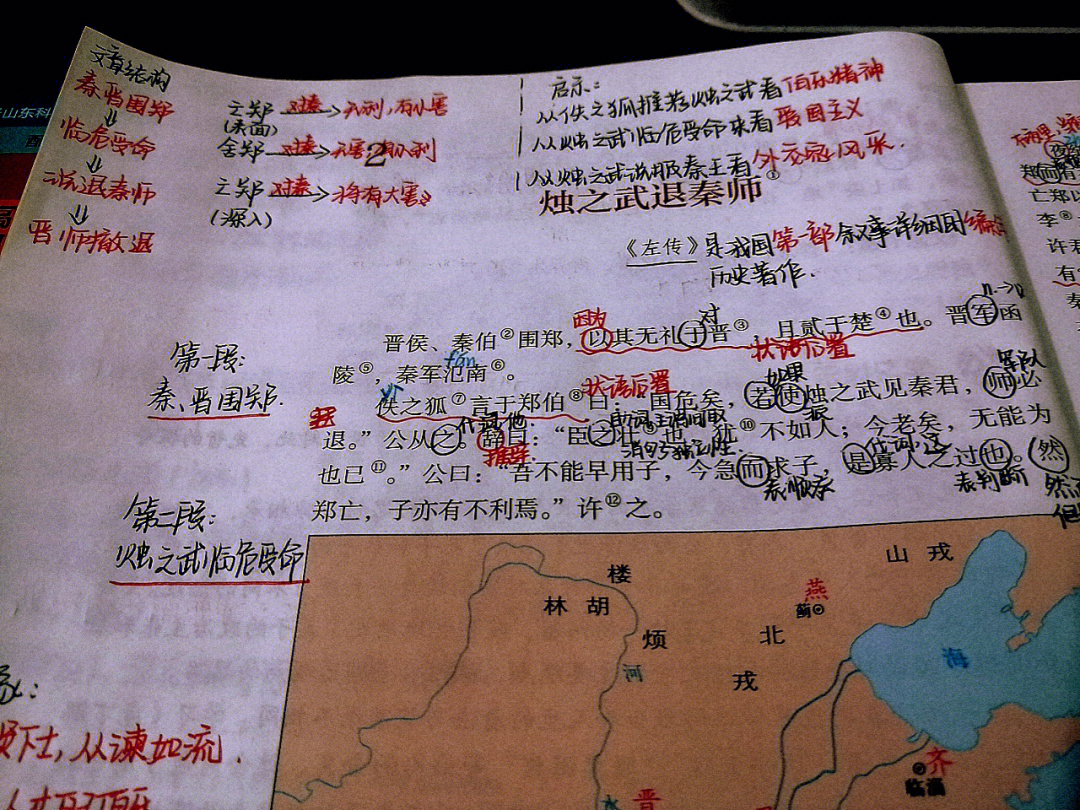 文章结构
秦晋围郑
临危受命
说退秦师
晋师撤退
亡郑 对秦 无利,有小害
(表面)
舍郑 对秦 无害 有小利
亡郑 对秦 将有大害
(深入)
2
启示:
从佚之狐推荐烛之武看伯乐精神
从烛之武临危受命来看爱国主义
从烛之武说服秦王看外交家风采.
烛之武退秦师①
《左传》是我国第一部叙事详细的编年
历史著作.
因为
对
n.→v
晋侯、秦伯②围郑,以其无礼于晋③,且贰于楚④也。晋军函
状语后置
陵⑤,秦军氾南⑥。
fán
第一段:
秦、晋围郑.
yì
状语后置
如果
军队
佚之狐⑦言于郑伯⑧曰:“国危矣,若使烛之武见秦君,师必
派
代词,他.
退。”公从之。辞曰:“臣之壮⑨也,犹⑩不如人;今老矣,无能为
推辞
代词,这
也已⑪。”公曰:“吾不能早用子,今急而求子,是寡人之过也。然
表顺承
表判断
郑亡,子亦有不利焉。”许⑫之。
第二段:
烛之武临危受命
楼
林 胡
烦
山 戎
燕
蓟
北
戎
河
海
齐
临淄
晋
水
下士,从谏如流.
山东科
亡郑以
李⑧
许君